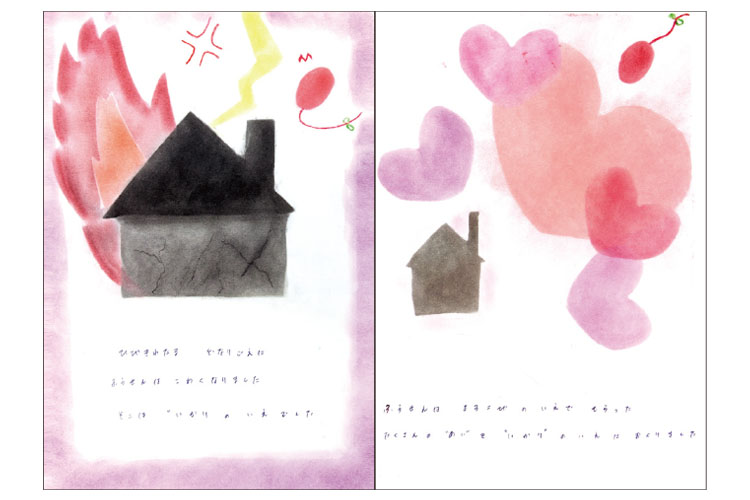 ひびきわたる どなりごえに
ふうせんは こわくなりました
そこは “いかり” の いえ でした
ふうせんは よろこび の いえで もらった
たくさんの “あい” を “いかり” の いえに おくりました